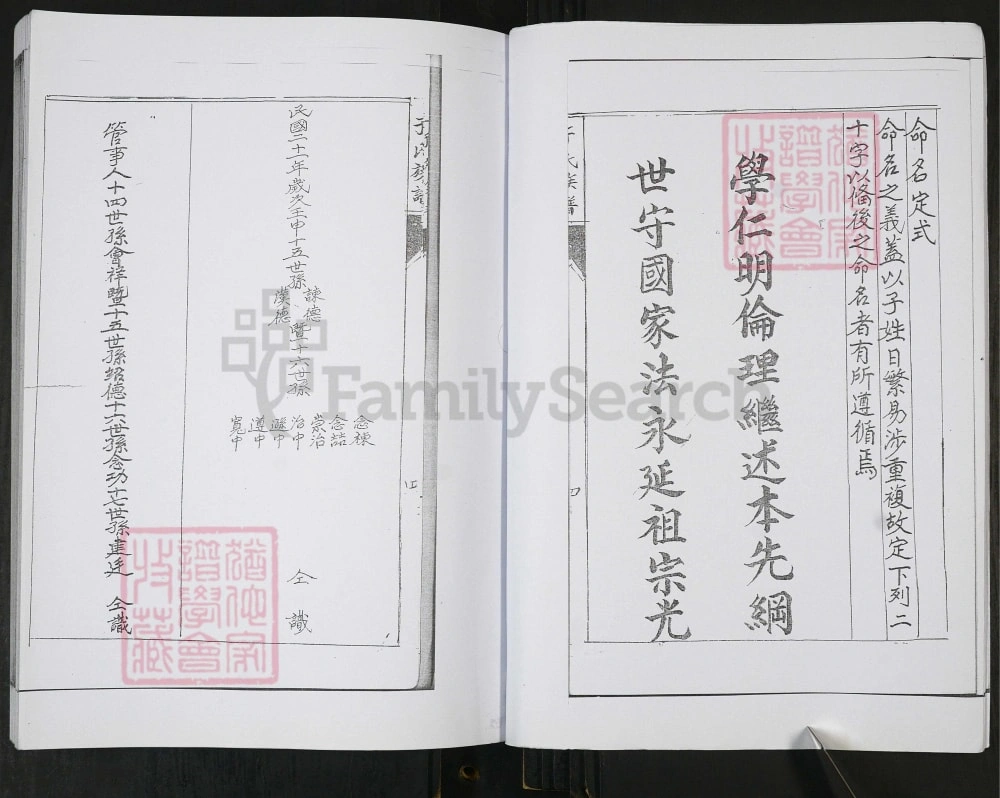 命名定式
命名之義蓋以子姓日繁易涉重複故定下列二
十字以備後之命名者有所遵循焉
學仁明倫理繼述本先綱
世守國家法永延祖宗光
氏族譜
四
猶他家譜學會收藏
于氏族譜
民國二十一年歲次壬申十五世孫諫德漢德暨十六世孫
念棟
念喆
崇治
治中
繼中
遵中
寬中
仝識
四
管事人十四世孫會祥暨十五世孫紹德十六世孫念功十七世孫建廷 仝識
猶他家譜學會收藏
FamilySearch